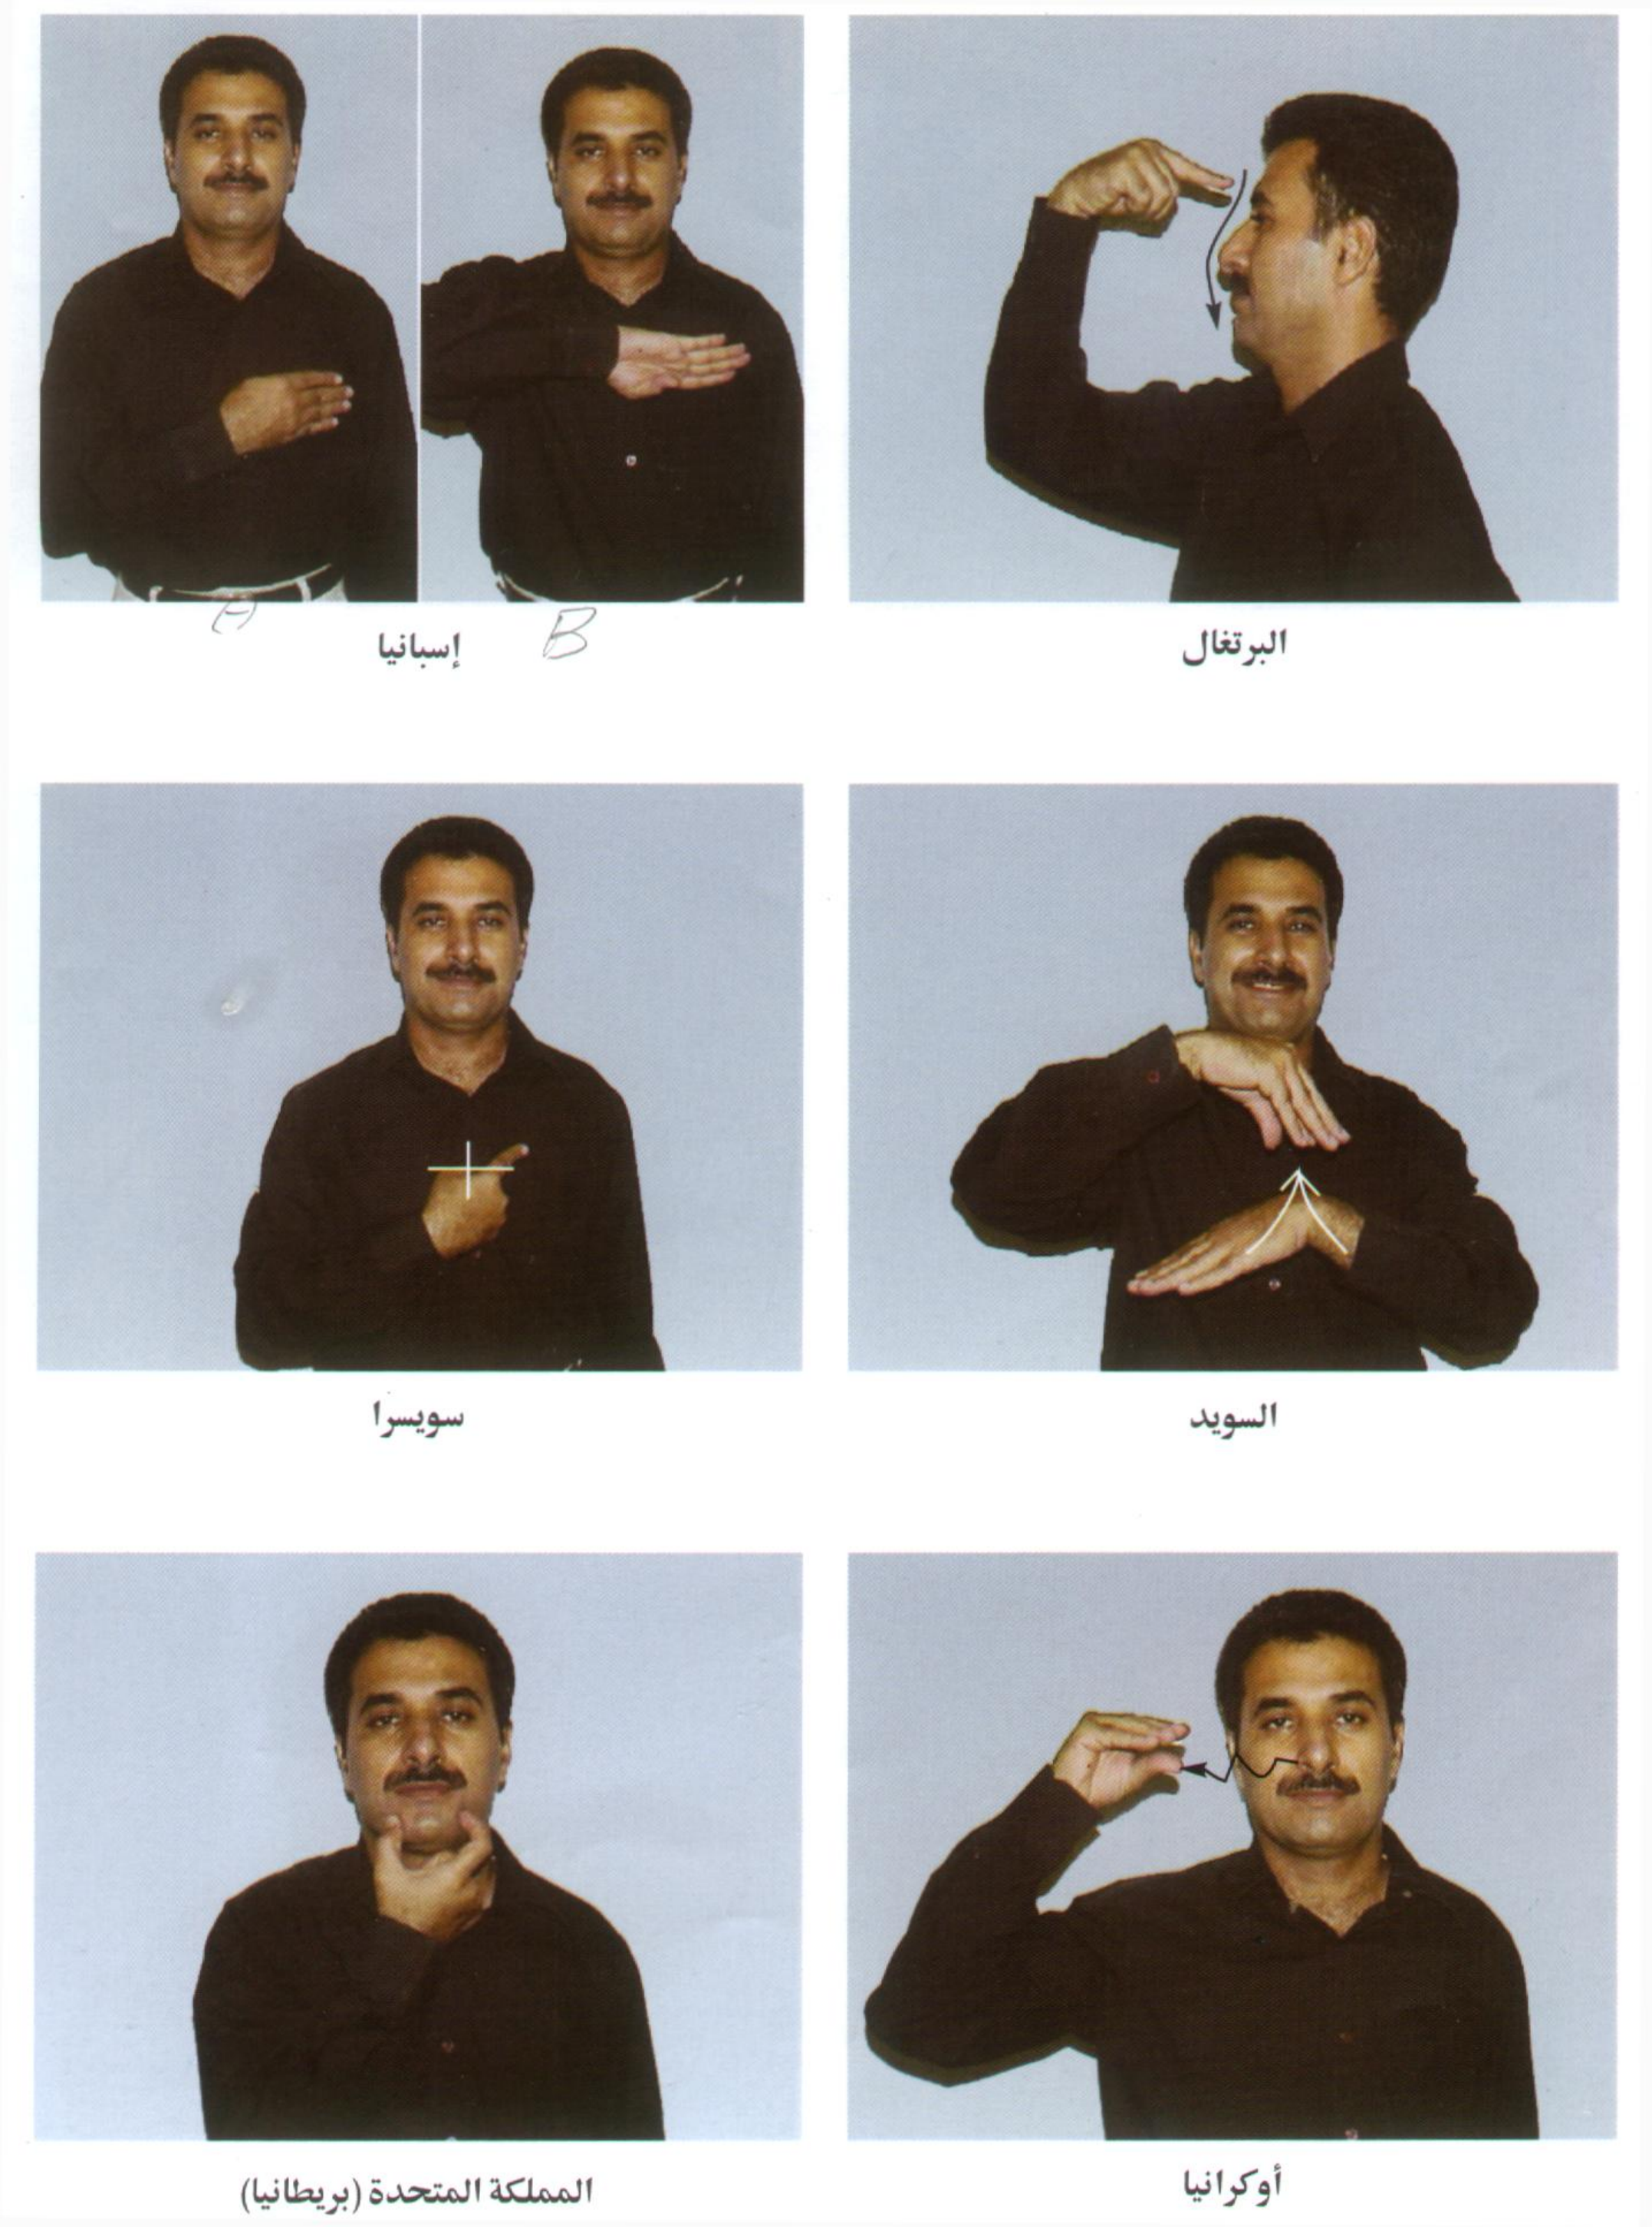 البرتغال
إسبانيا
A B
السويد
سويسرا
أوكرانيا
المملكة المتحدة (بريطانيا)